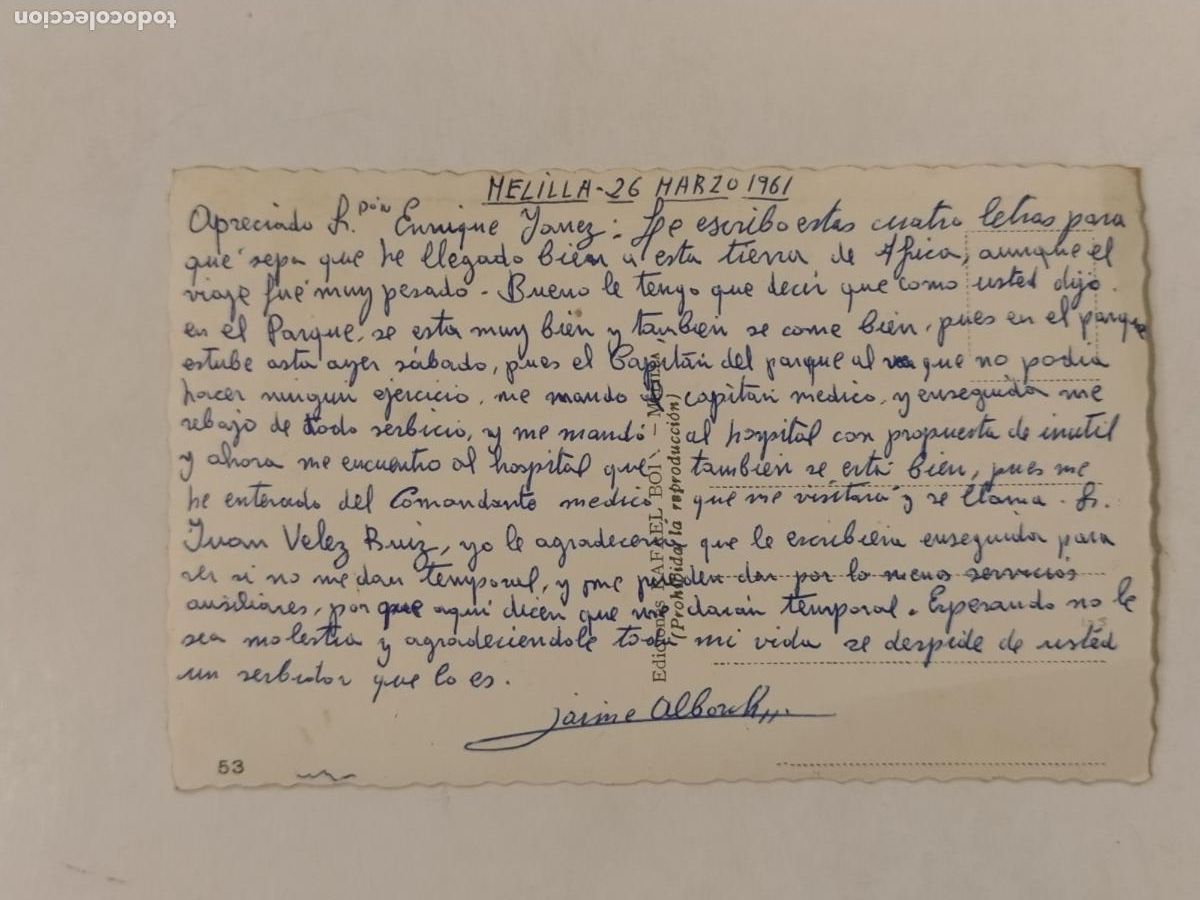 todocoleccion
MELILLA-26 MARZO 1961
Apreciado Sr. Don Enrique Yanez: Le escribo estas cuatro letras para
que sepa que he llegado bien a esta tierra de Africa, aunque el
viaje fué muy pesado - Bueno le tengo que decir que como usted dijo.
en el Parque, se esta muy bien y tambien se come bien, pues en el parque
estube asta ayer sábado, pues el Capitán del parque al que no podia
hacer ningun ejercicio, me mando capitan medico, y enseguida me
rebajo de todo serbicio, y me mandó al hospital con propuesta de inutil
y ahora me encuentro al hospital que tambien se está bien, pues me
he enterado del Comandante medico que me visitará y se llama - Sr.
Juan Velez Ruiz, yo le agradeceria que le escribiera enseguida para
ver si no me dan temporal, y me pueden dar por lo menos servicios
auxiliares, por que aqui dicen que me darán temporal. Esperando no le
sea molestia y agradeciendole toda mi vida se despide de usted
un serbidor que lo es.
Jaime Alborch
53
Ediciones RAFAEL BOI - Melilla
(Prohibida la reproducción)